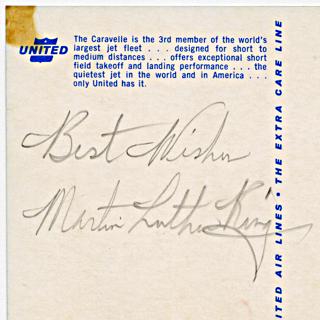 UNITED
The Caravelle is the 3rd member of the world's
largest jet fleet . . . designed for short to
medium distances . . . offers exceptional short
field takeoff and landing performance . . . the
quietest jet in the world and in America . . .
only United has it.
Best Wishes
Martin Luther King
ITED AIR LINES • THE EXTRA CARE LINE